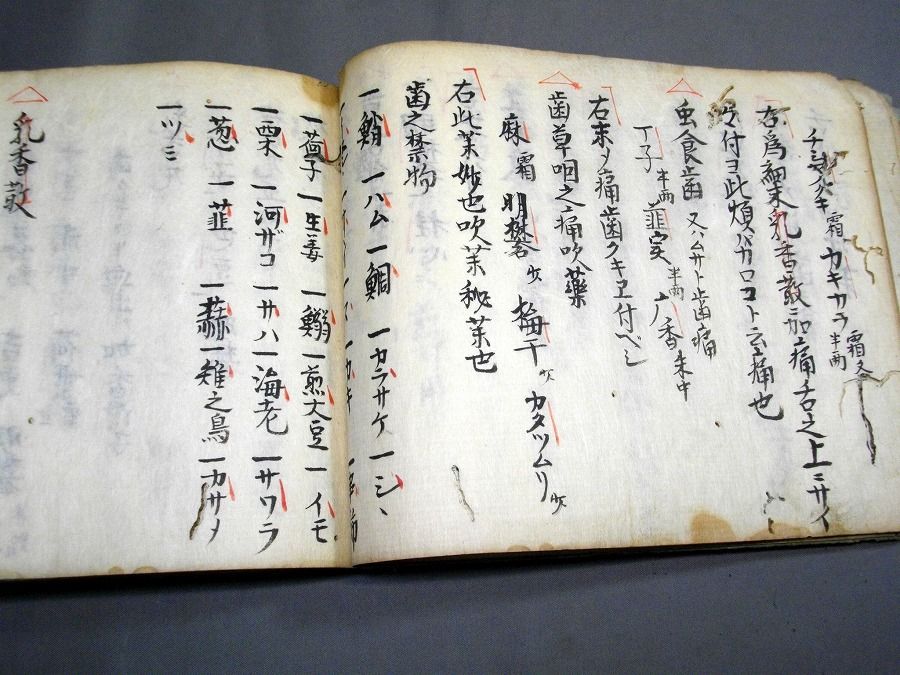 霜 カキカラ 半両 霜
右為細末乳香散ニ加ヱ痛舌之上ニサイ
付ヨ此煩ハガロコト云痛也
虫食歯 又ハムサト歯痛
丁子 半両 韮実 半両 广香 朱中
右末メ痛歯クキヱ付ベシ
歯草咽之痛吹藥
麻 霜 明礬 少 梅干 少 カタツムリ 少
右此薬妙也吹薬秘薬也
歯之禁物
一鯖 一ハム 一鯛 一カラサケ 一シヽ
一茄子 一生姜 一鰯 一煎大豆 一イモ
一栗 一河ザコ 一サハ 一海老 一サワラ
一葱 一韮 一蒜 一雉之鳥 一カサメ
一ツミ
乳香散